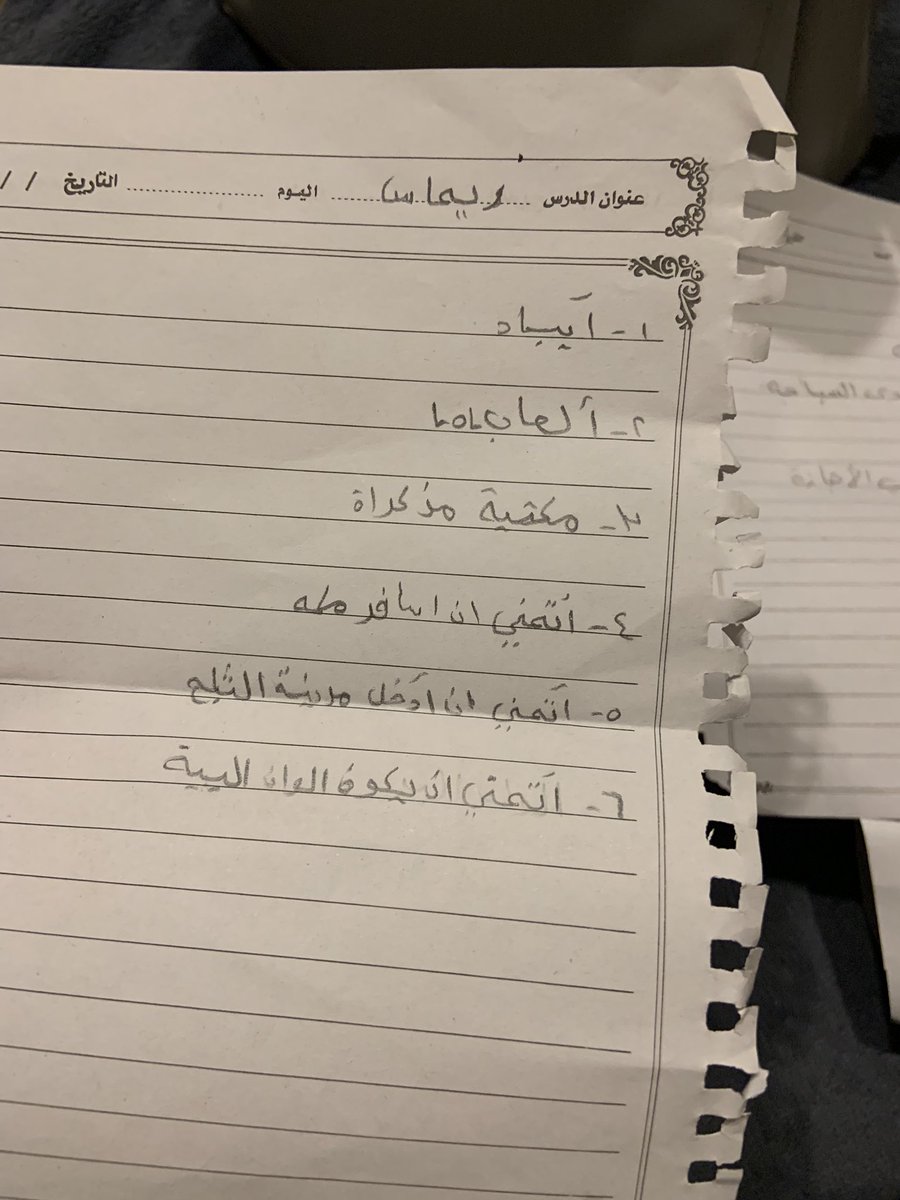 عنوان الدرس ..... ريماس ..... اليوم ..... التاريخ / /
١- آيباد
٢- ألعاب
٣- مكتبية مذكراة
٤- أتمني ان اسافر مكه
٥- أتمني ان أدخل مدينة الثلج
٦- أتمني ان يكون الوان البيية